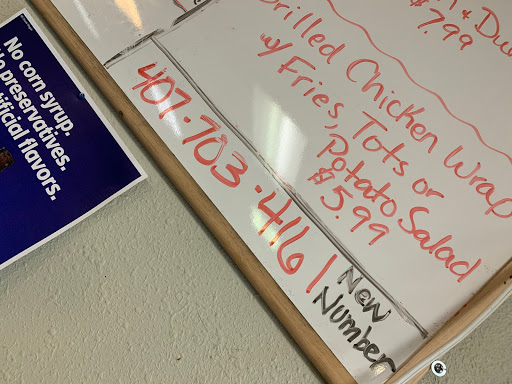 No corn syrup.
No preservatives.
artificial flavors.
$7.99
Grilled Chicken Wrap
w/ Fries, Tots or
Potato Salad
$5.99
407.703.4161
New
Number